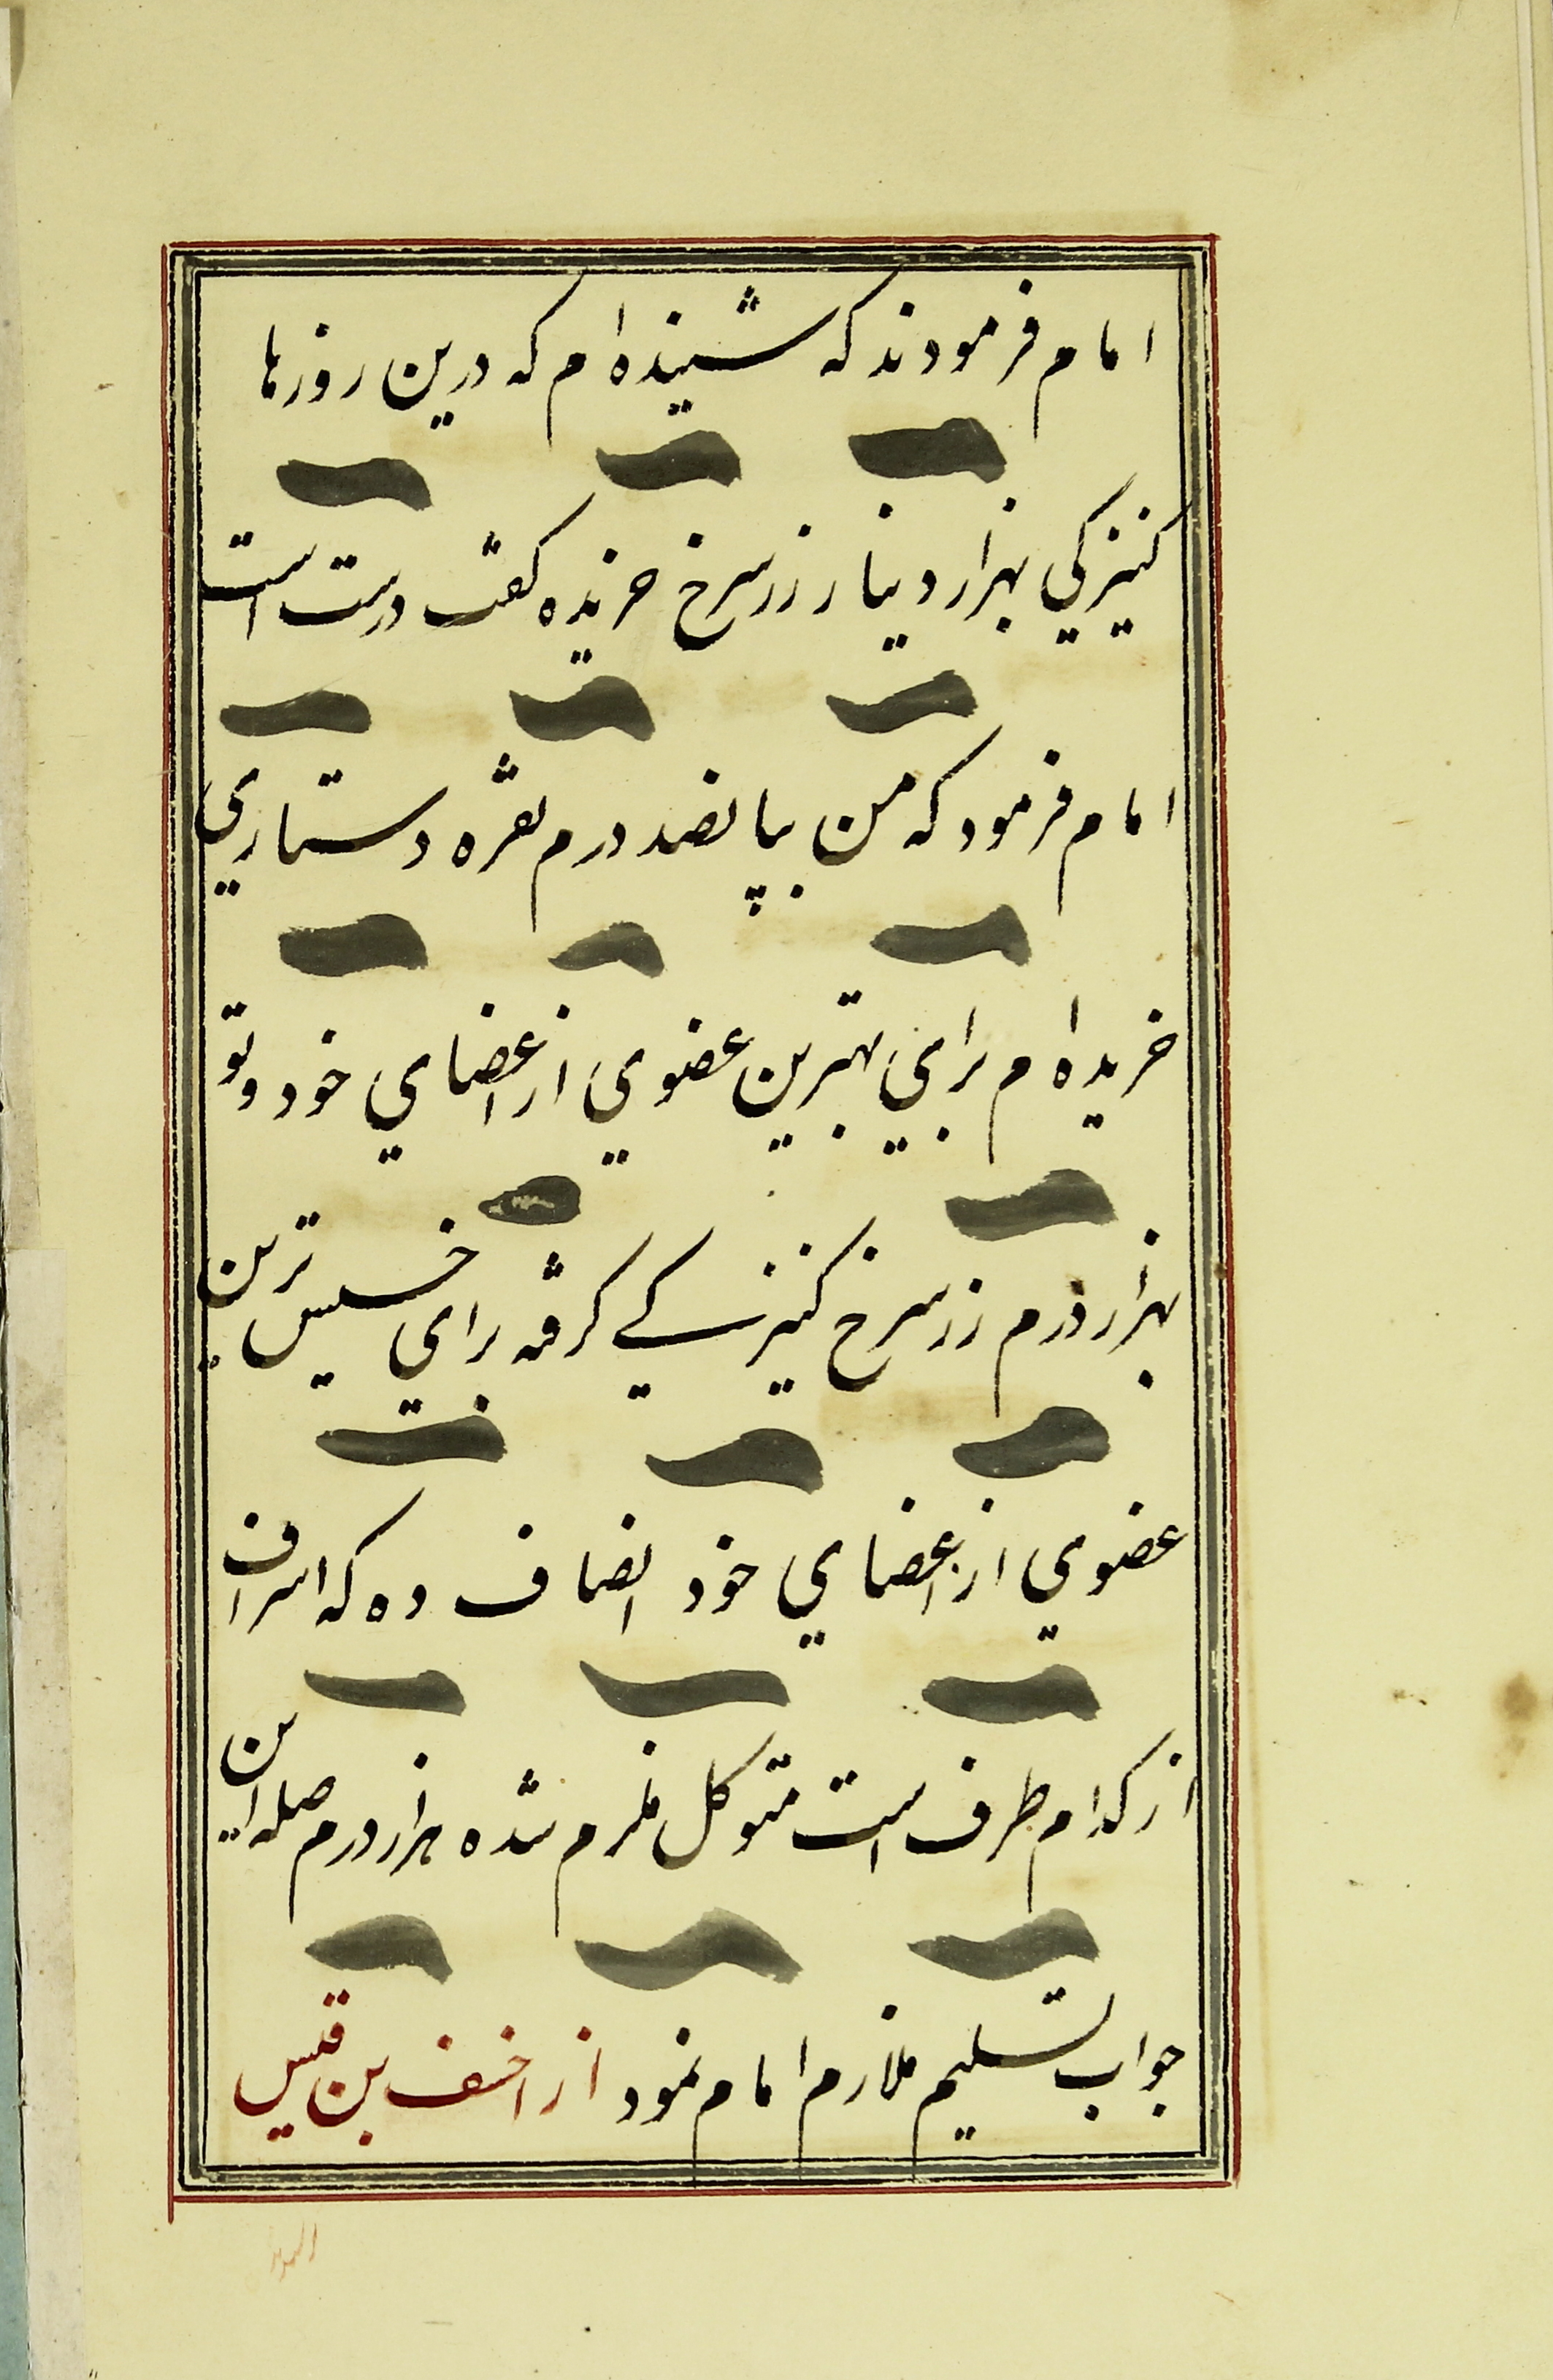 امام فرمودند که شنیده‌ام که درین روزها
کنیزکی بهزار دینار زر سرخ خریده گفت درست است
امام فرمود که من بپانصد درم نقره دستاری
خریده‌ام برای بهترین عضوی از اعضای خود و تو
بهزار درم زر سرخ کنیزکے گرفته برای خسیس ترین
عضوی از اعضای خود انصاف ده که اسراف
از کدام طرف است متوکل ملزم شده هزار درم صله این
جواب تسلیم ملازم امام نمود از احنف بن قیس